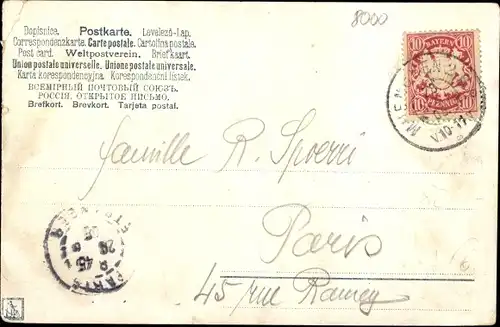 8000
Dopisnice. Postkarte. Levelező-Lap.
Correspondenzkarte. Carte postale. Cartolina postale.
Post card. Weltpostverein. Briefkaart.
Union postale universelle. Unione postale universale.
Karta korespondencyjna. Korespondenční lístek.
ВСЕМІРНЫЙ ПОЧТОВЫЙ СОЮЗЪ.
РОССІЯ, ОТКРЫТОЕ ПИСЬМО.
Brefkort. Brevkort. Tarjeta postal.
10 BAYERN 10
10 PFENNIG 10
famille R. Spoerri
Paris
45 rue Ramey